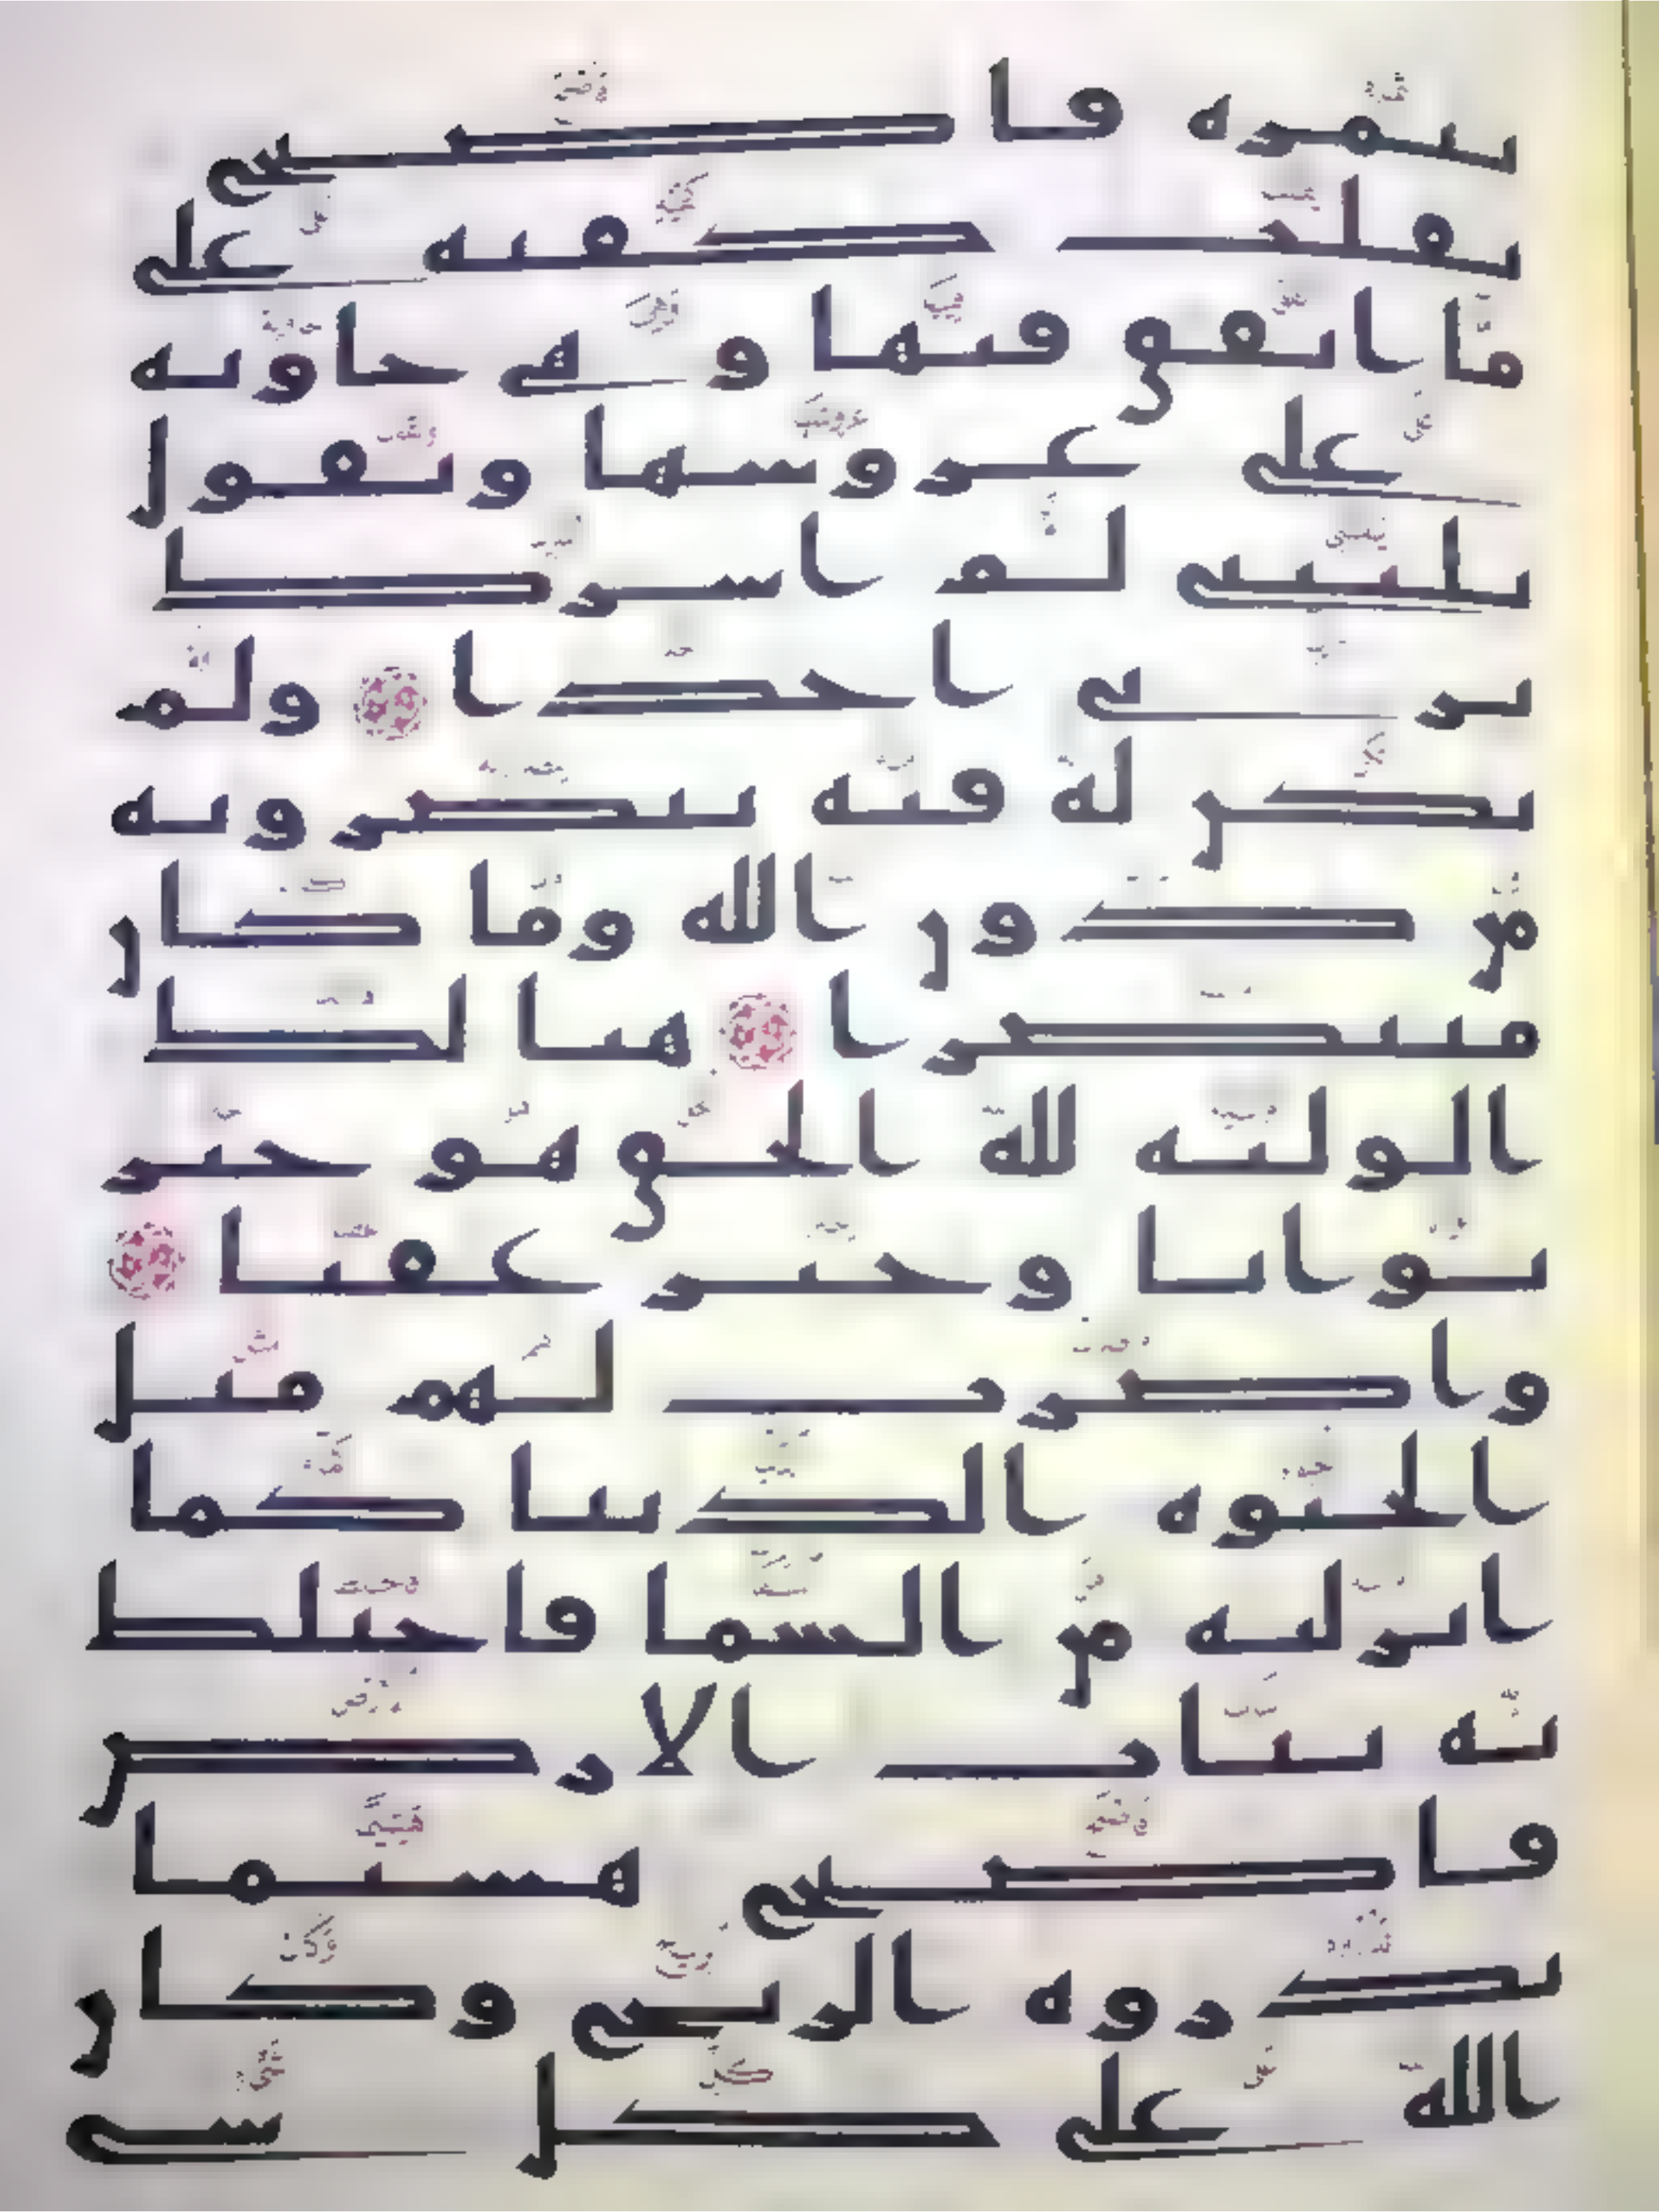 بثمره فاصبح
يقلب كفيه على
ما انفق فيها وهي خاوية
على عروشها ويقول
يليتني لم اشرك
بربي احدا ۝ ولم
تكن له فئة ينصرونه
من دون الله وما كان
منتصرا ۝ هنالك
الولية لله الحق هو خير
ثوابا وخير عقبا ۝
واضرب لهم مثل
الحيوة الدنيا كما
انزلنه من السما فاختلط
به نبات الارض
فاصبح هشيما
تذروه الريح وكان
الله على كل شي